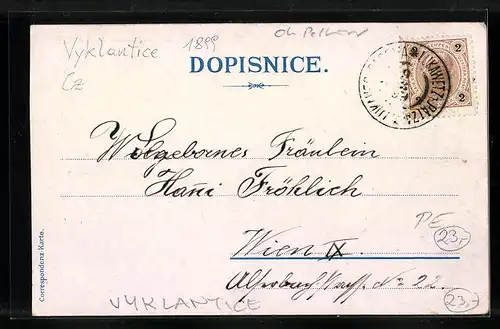 Vyklantice 1899
Cz
DOPISNICE.
2
2
Wolgebornes Fräulein
Hani Fröhlich
PE
23,-
Wien IX.
No 22.
Correspondenz-Karte.
VYKLANTICE
23,-